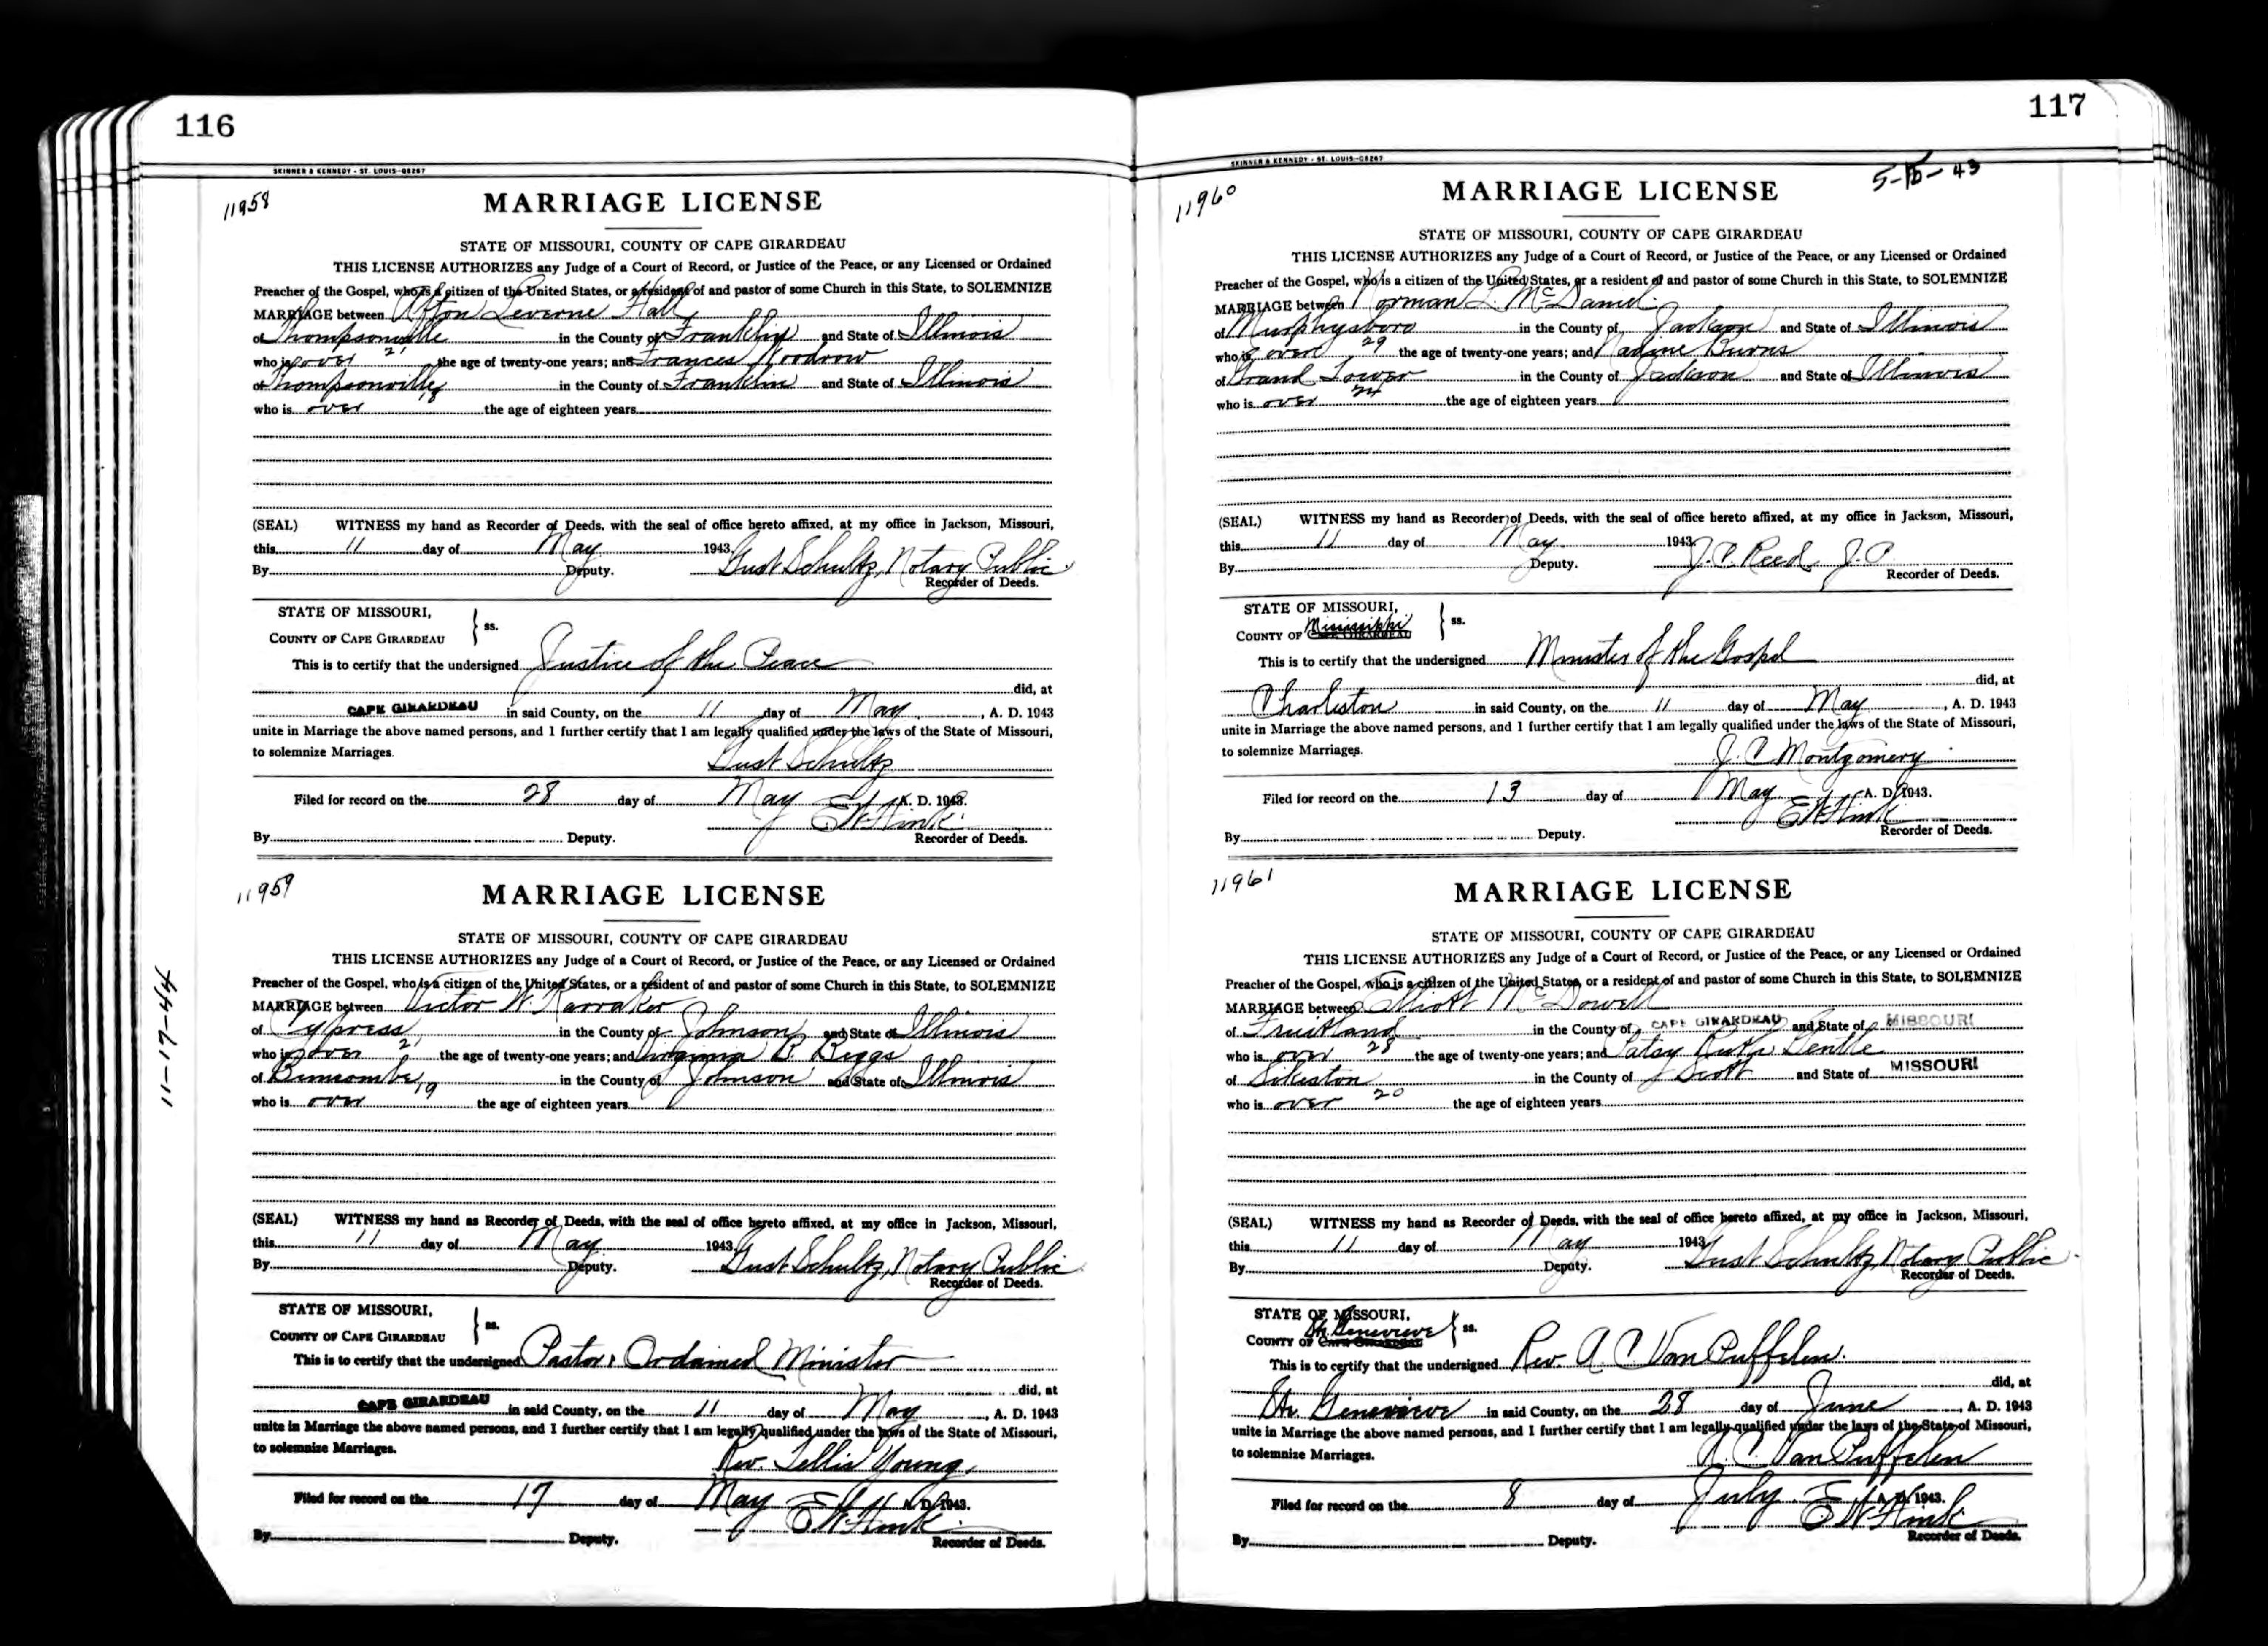 116
SKINNER & KENNEDY - ST. LOUIS-G8267
11958
MARRIAGE LICENSE
STATE OF MISSOURI, COUNTY OF CAPE GIRARDEAU
THIS LICENSE AUTHORIZES any Judge of a Court of Record, or Justice of the Peace, or any Licensed or Ordained
Preacher of the Gospel, who is a citizen of the United States, or a resident of and pastor of some Church in this State, to SOLEMNIZE
MARRIAGE between Afton Leverne Hall
of Thompsonville in the County of Franklin and State of Illinois
who is over 21 the age of twenty-one years; and Frances Woodrow
of Thompsonville in the County of Franklin and State of Illinois
who is over 18 the age of eighteen years
(SEAL) WITNESS my hand as Recorder of Deeds, with the seal of office hereto affixed, at my office in Jackson, Missouri,
this 11 day of May 1943.
By Deputy. Gust Schultz, Notary Public
Recorder of Deeds.
STATE OF MISSOURI,
COUNTY OF CAPE GIRARDEAU } ss.
This is to certify that the undersigned Justice of the Peace
did, at
CAPE GIRARDEAU in said County, on the 11 day of May, A. D. 1943
unite in Marriage the above named persons, and I further certify that I am legally qualified under the laws of the State of Missouri,
to solemnize Marriages. Gust Schultz
Filed for record on the 28 day of May A. D. 1943.
E W Hink
By Deputy. Recorder of Deeds.
11959
11-17-44
MARRIAGE LICENSE
STATE OF MISSOURI, COUNTY OF CAPE GIRARDEAU
THIS LICENSE AUTHORIZES any Judge of a Court of Record, or Justice of the Peace, or any Licensed or Ordained
Preacher of the Gospel, who is a citizen of the United States, or a resident of and pastor of some Church in this State, to SOLEMNIZE
MARRIAGE between Victor W. Karraker
of Cypress in the County of Johnson and State of Illinois
who is over 21 the age of twenty-one years; and Virginia R. Biggs
of Buncombe in the County of Johnson and State of Illinois
who is over 19 the age of eighteen years
(SEAL) WITNESS my hand as Recorder of Deeds, with the seal of office hereto affixed, at my office in Jackson, Missouri,
this 11 day of May 1943.
By Deputy. Gust Schultz, Notary Public
Recorder of Deeds.
STATE OF MISSOURI,
COUNTY OF CAPE GIRARDEAU } ss.
This is to certify that the undersigned Pastor, Ordained Minister
did, at
CAPE GIRARDEAU in said County, on the 11 day of May, A. D. 1943
unite in Marriage the above named persons, and I further certify that I am legally qualified under the laws of the State of Missouri,
to solemnize Marriages. Rev. Tellis Young.
Filed for record on the 17 day of May A. D. 1943.
E W Hink
By Deputy. Recorder of Deeds.
117
SKINNER & KENNEDY - ST. LOUIS-G8267
11960
5-15-43
MARRIAGE LICENSE
STATE OF MISSOURI, COUNTY OF CAPE GIRARDEAU
THIS LICENSE AUTHORIZES any Judge of a Court of Record, or Justice of the Peace, or any Licensed or Ordained
Preacher of the Gospel, who is a citizen of the United States, or a resident of and pastor of some Church in this State, to SOLEMNIZE
MARRIAGE between Norman L. McDaniel.
of Murphysboro in the County of Jackson and State of Illinois
who is over 29 the age of twenty-one years; and Nadine Burns
of Grand Tower in the County of Jackson and State of Illinois
who is over 24 the age of eighteen years
(SEAL) WITNESS my hand as Recorder of Deeds, with the seal of office hereto affixed, at my office in Jackson, Missouri,
this 11 day of May 1943.
By Deputy. J. P. Reed J. P
Recorder of Deeds.
STATE OF MISSOURI,
COUNTY OF Mississippi CAPE GIRARDEAU } ss.
This is to certify that the undersigned Minister of the Gospel
did, at
Charleston in said County, on the 11 day of May, A. D. 1943
unite in Marriage the above named persons, and I further certify that I am legally qualified under the laws of the State of Missouri,
to solemnize Marriages. J. C Montgomery
Filed for record on the 13 day of May A. D. 1943.
E W Hink
By Deputy. Recorder of Deeds.
11961
MARRIAGE LICENSE
STATE OF MISSOURI, COUNTY OF CAPE GIRARDEAU
THIS LICENSE AUTHORIZES any Judge of a Court of Record, or Justice of the Peace, or any Licensed or Ordained
Preacher of the Gospel, who is a citizen of the United States, or a resident of and pastor of some Church in this State, to SOLEMNIZE
MARRIAGE between Eliott McDowell
of Fruitland in the County of CAPE GIRARDEAU and State of MISSOURI
who is over 28 the age of twenty-one years; and Patsy Ruth Gentle
of Sikeston in the County of Scott and State of MISSOURI
who is over 20 the age of eighteen years
(SEAL) WITNESS my hand as Recorder of Deeds, with the seal of office hereto affixed, at my office in Jackson, Missouri,
this 11 day of May 1943
By Deputy. Gust Schultz, Notary Public
Recorder of Deeds.
STATE OF MISSOURI,
COUNTY OF Ste Genevieve CAPE GIRARDEAU } ss.
This is to certify that the undersigned Rev. A C Van Puffelen.
did, at
Ste Genevieve in said County, on the 28 day of June, A. D. 1943
unite in Marriage the above named persons, and I further certify that I am legally qualified under the laws of the State of Missouri,
to solemnize Marriages. A. C Van Puffelen
Filed for record on the 8 day of July A. D. 1943.
E W Hink
By Deputy. Recorder of Deeds.